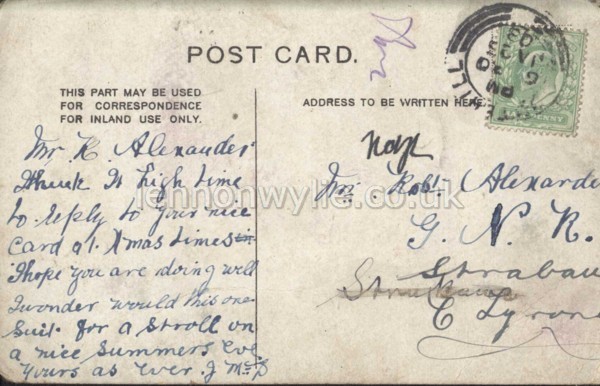 POST CARD.
THIS PART MAY BE USED
FOR CORRESPONDENCE
FOR INLAND USE ONLY.
ADDRESS TO BE WRITTEN HERE.
Mr. R. Alexander
think it high time
to reply to your nice
card at Xmas times
I hope you are doing well
I wonder would this one
suit for a stroll on
a nice summers eve
yours as ever J McB
Mr. Robt Alexander
G. N. R.
Strabane
Co Tyrone
HILL
PM
PENNY
lennonwylie.co.uk